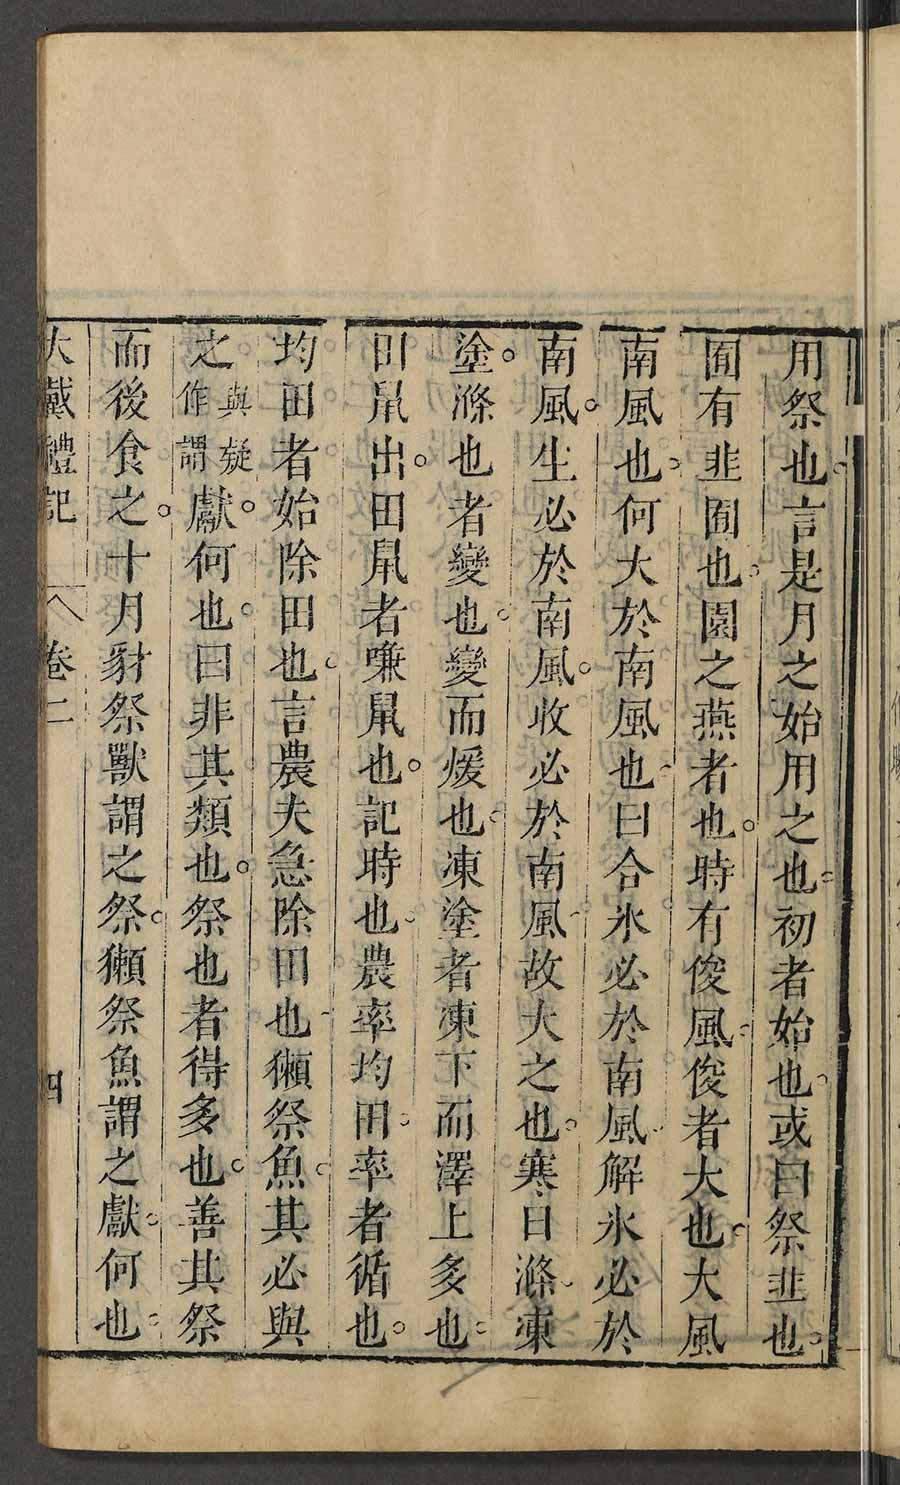 用祭也言是月之始用之也初者始也或曰祭韭也
囿有韭囿也園之燕者也時有俊風俊者大也大風
南風也何大於南風也曰合氷必於南風解氷必於
南風生必於南風收必於南風故大之也寒日滌凍
塗滌也者變也變而煖也凍塗者凍下而澤上多也
田鼠出田鼠者嗛鼠也記時也農率均田率者循也
均田者始除田也言農夫急除田也獺祭魚其必與
之與疑作謂獻何也曰非其類也祭也者得多也善其祭
而後食之十月豺祭獸謂之祭獺祭魚謂之獻何也
大戴禮記 卷二 四